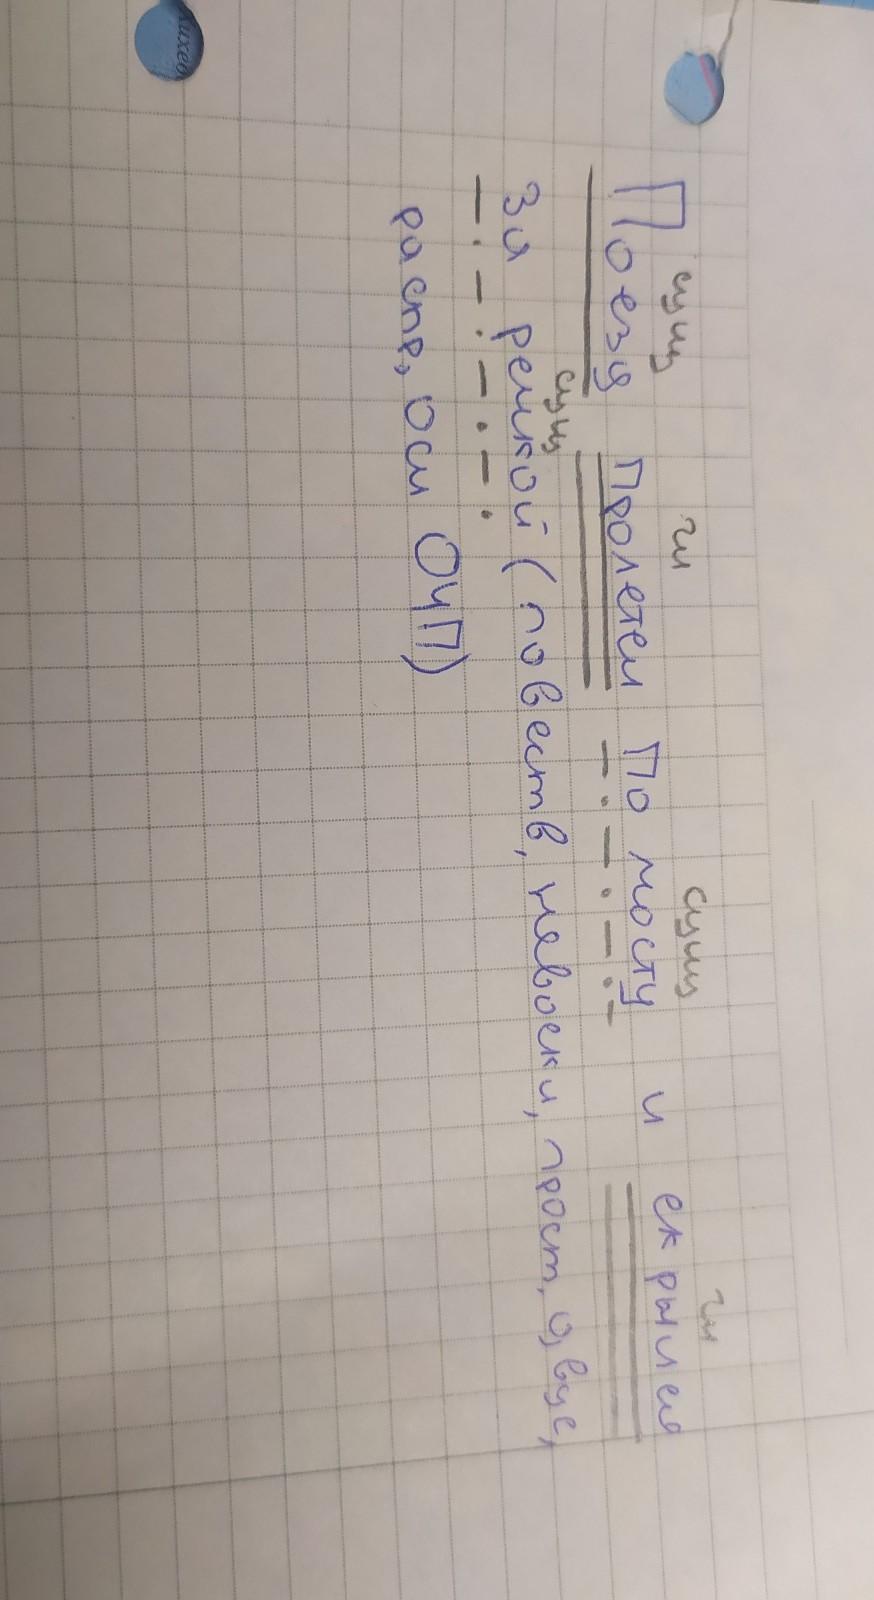 сущ гл сущ гл
Поезд пролетел по мосту и скрылся
сущ
за рекой (повеств, невоскл, прост, двус,
распр, осл ОЧП)